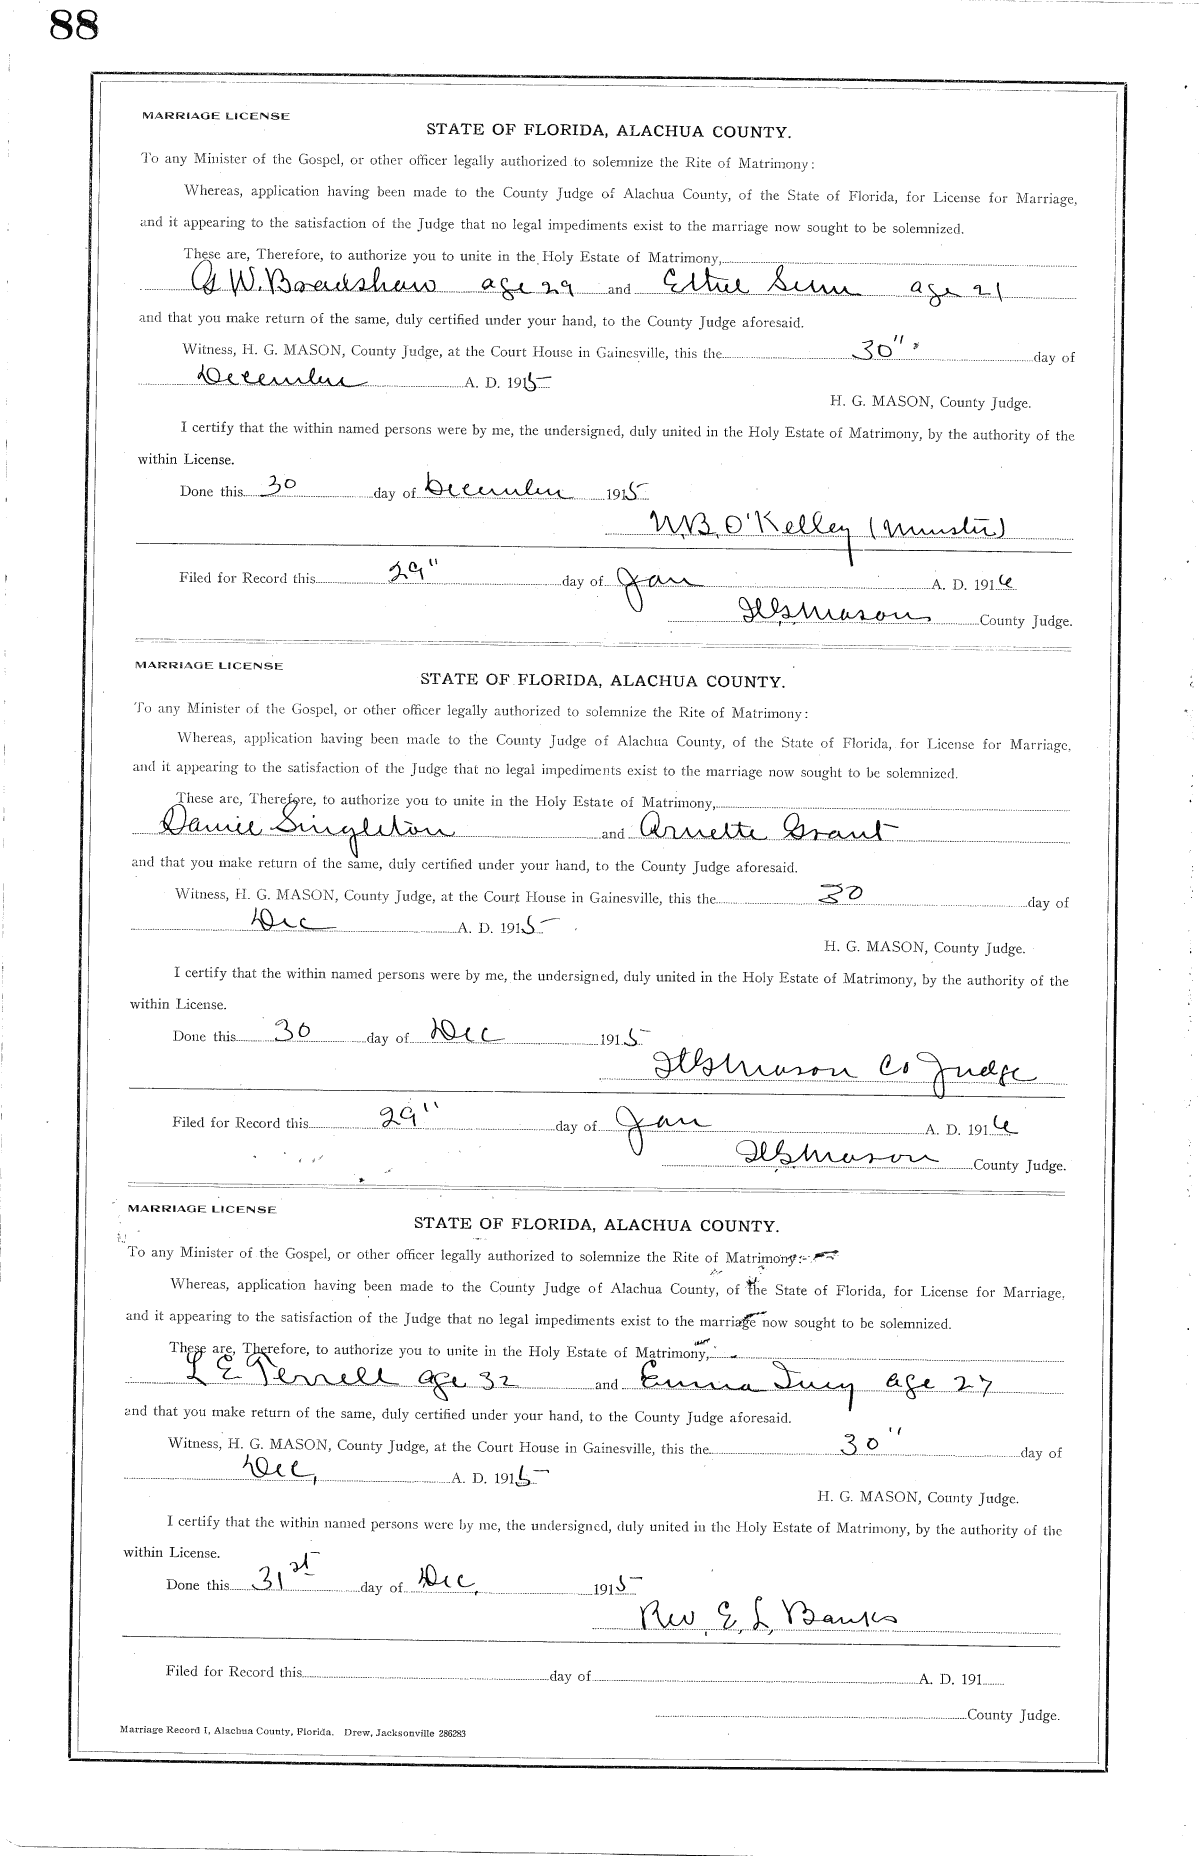 88
MARRIAGE LICENSE
STATE OF FLORIDA, ALACHUA COUNTY.
To any Minister of the Gospel, or other officer legally authorized to solemnize the Rite of Matrimony:
Whereas, application having been made to the County Judge of Alachua County, of the State of Florida, for License for Marriage,
and it appearing to the satisfaction of the Judge that no legal impediments exist to the marriage now sought to be solemnized.
These are, Therefore, to authorize you to unite in the Holy Estate of Matrimony,
G W. Bradshaw age 29 and Ethel age 21
and that you make return of the same, duly certified under your hand, to the County Judge aforesaid.
Witness, H. G. MASON, County Judge, at the Court House in Gainesville, this the 30" day of
December A. D. 1915
H. G. MASON, County Judge.
I certify that the within named persons were by me, the undersigned, duly united in the Holy Estate of Matrimony, by the authority of the
within License.
Done this 30 day of December 1915
O'Kelley (Minister)
Filed for Record this 29" day of Jan A. D. 1916
H G Mason County Judge.
MARRIAGE LICENSE
STATE OF FLORIDA, ALACHUA COUNTY.
To any Minister of the Gospel, or other officer legally authorized to solemnize the Rite of Matrimony:
Whereas, application having been made to the County Judge of Alachua County, of the State of Florida, for License for Marriage,
and it appearing to the satisfaction of the Judge that no legal impediments exist to the marriage now sought to be solemnized.
These are, Therefore, to authorize you to unite in the Holy Estate of Matrimony,
Singleton and Arnette Grant
and that you make return of the same, duly certified under your hand, to the County Judge aforesaid.
Witness, H. G. MASON, County Judge, at the Court House in Gainesville, this the 30 day of
Dec A. D. 1915
H. G. MASON, County Judge.
I certify that the within named persons were by me, the undersigned, duly united in the Holy Estate of Matrimony, by the authority of the
within License.
Done this 30 day of Dec 1915
H G Mason Co Judge
Filed for Record this 29" day of Jan A. D. 1916
H G Mason County Judge.
MARRIAGE LICENSE
STATE OF FLORIDA, ALACHUA COUNTY.
To any Minister of the Gospel, or other officer legally authorized to solemnize the Rite of Matrimony:
Whereas, application having been made to the County Judge of Alachua County, of the State of Florida, for License for Marriage,
and it appearing to the satisfaction of the Judge that no legal impediments exist to the marriage now sought to be solemnized.
These are, Therefore, to authorize you to unite in the Holy Estate of Matrimony,
L E Terrell age 32 and Emma age 27
and that you make return of the same, duly certified under your hand, to the County Judge aforesaid.
Witness, H. G. MASON, County Judge, at the Court House in Gainesville, this the 30" day of
Dec, A. D. 1915
H. G. MASON, County Judge.
I certify that the within named persons were by me, the undersigned, duly united in the Holy Estate of Matrimony, by the authority of the
within License.
Done this 31st day of Dec, 1915
Rev. E. L. Banks
Filed for Record this day of A. D. 191
County Judge.
Marriage Record I, Alachua County, Florida. Drew, Jacksonville 286283